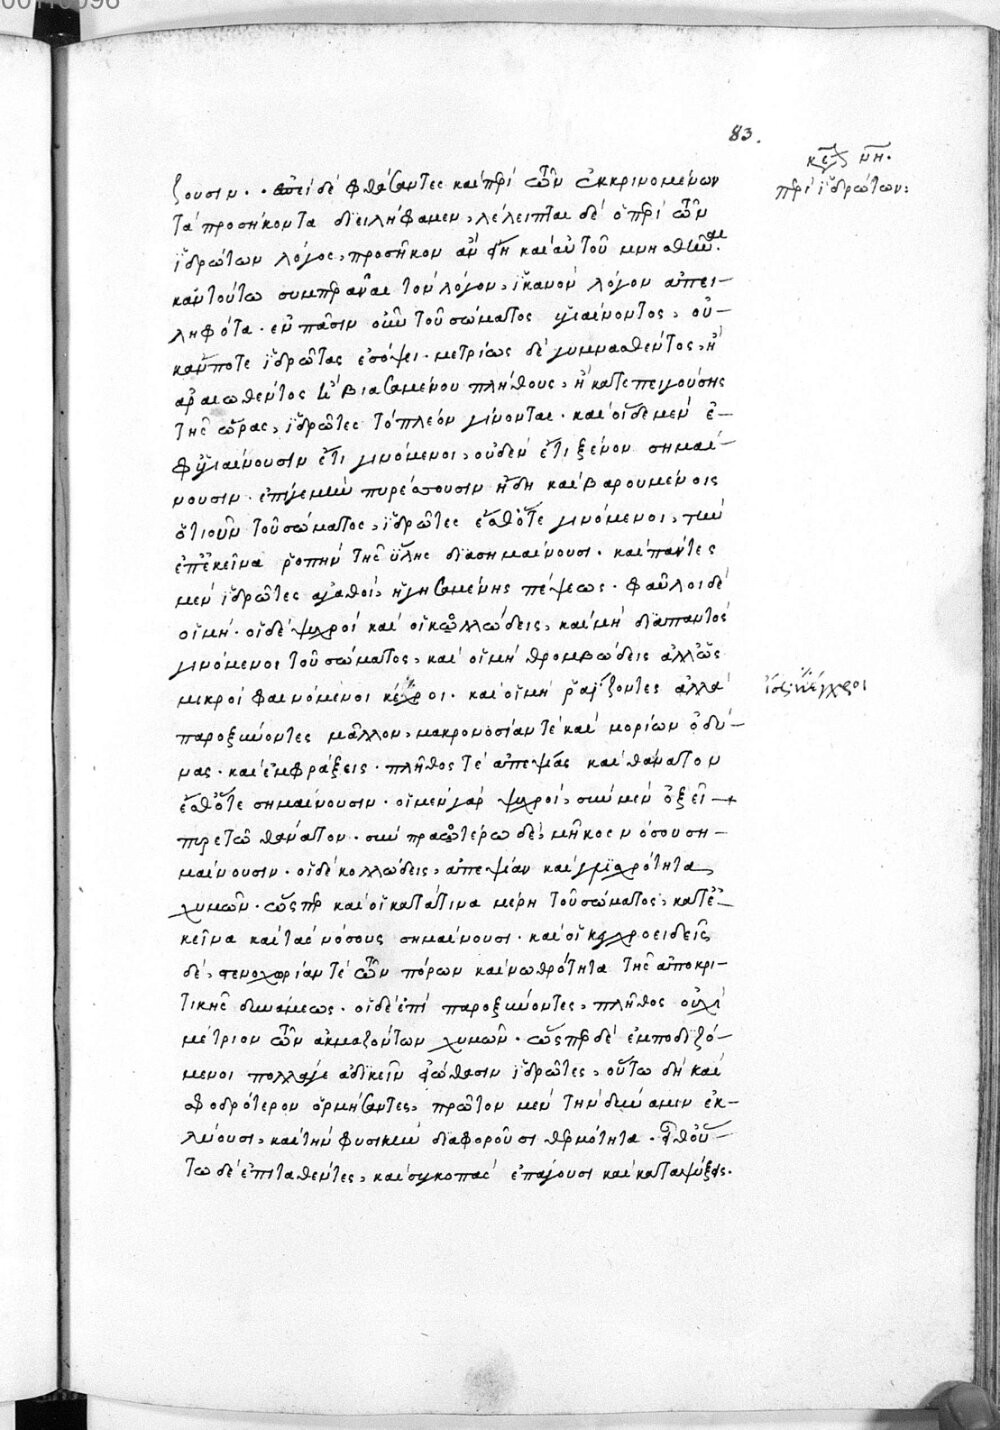 83.
κεφ νη.
περὶ ἱδρώτων:
ζουσιν. ἐπεὶ δὲ φθάσαντες καὶ περὶ τῶν ἐκκρινομένων
τὰ προσήκοντα διειλήφαμεν, λέλειπται δὲ ὁ περὶ τῶν
ἱδρώτων λόγος, προσῆκον ἂν εἴη καὶ αὐτοῦ μνησθῆναι.
κἀν τούτω συμπερᾶναι τὸν λόγον, ἱκανὸν λόγον ἀπει-
ληφότα. ἐν πᾶσιν οὖν τοῦ σώματος ὑγιαίνοντος, οὐ-
κἄν ποτε ἱδρῶτας ἐσόψει. μετρίως δὲ γυμνασθέντος, ἢ
ἀραιωθέντος ἢ βιασαμένου πλήθους, ἢ κατεπειγούσης
τῆς ὥρας, ἱδρῶτες τὸ πλέον γίνονται. καὶ οἵδε μὲν ἐ-
φ' ὑγιαίνουσιν ἔτι γινόμενοι, οὐδὲν ἔτι ξένον σημαί-
νουσιν. ἐπί γε μὴν πυρέσσουσιν ἤδη καὶ βαρουμένοις
ὁτιοῦν τοῦ σώματος, ἱδρῶτες ἔσθ' ὅτε γινόμενοι, τὴν
ἐπ' ἐκεῖνα ῥοπὴν τῆς ὕλης διασημαίνουσι. καὶ πάντες
μὲν ἱδρῶτες ἀγαθοὶ, ἡγησαμένης πέψεως. φαῦλοι δὲ
οἱ μή. οἱ δὲ ψυχροὶ καὶ οἱ κολλώδεις, καὶ μὴ διαπαντὸς
γινόμενοι τοῦ σώματος, καὶ οἱ μὴ θρομβώδεις ἀλλ' ὡς
μικροὶ φαινόμενοι κέγχροι. καὶ οἱ μὴ ῥαΐζοντες ἀλλὰ
παροξύνοντες μᾶλλον, μακρονοσίαν τὲ καὶ μορίων ὀδύ-
νας. καὶ ἐμφράξεις. πλῆθος τὲ ἀπεψίας καὶ θάνατον
ἔσθ' ὅτε σημαίνουσιν. οἱ μὲν γὰρ ψυχροὶ, σὺν μὲν ὀξεῖ
πυρετῶ θάνατον. σὺν πραοτέρω δὲ, μῆκος νόσου ση-
μαίνουσιν. οἱ δὲ κολλώδεις, ἀπεψίαν καὶ γλισχρότητα
χυμῶν. ὥσπερ καὶ οἱ κατά τινα μέρη τοῦ σώματος, κατ' ἐ-
κεῖνα καὶ τὰς νόσους σημαίνουσι. καὶ οἱ κεγχροειδεῖς
δὲ, στενοχωρίαν τὲ τῶν πόρων καὶ νωθρότητα τῆς ἀποκρι-
τικῆς δυνάμεως. οἱ δὲ ἐπὶ παροξύνοντες, πλῆθος οὐχὶ
μέτριον τῶν ἀκμαζόντων χυμῶν. ὥσπερ δὲ ἐμποδιζό-
μενοι πολλάκις ἀδικεῖν εἰώθασιν ἱδρῶτες, οὕτω δὴ καὶ
σφοδρότερον ὁρμήσαντες, πρῶτον μὲν τὴν δύναμιν ἐκ-
λύουσι, καὶ τὴν φυσικὴν διαφοροῦσι θερμότητα. ἐπὶ τού-
τω δὲ ἐπιταθέντες, καὶ συγκοπὰς ἐπάγουσι καὶ καταψύξεις.